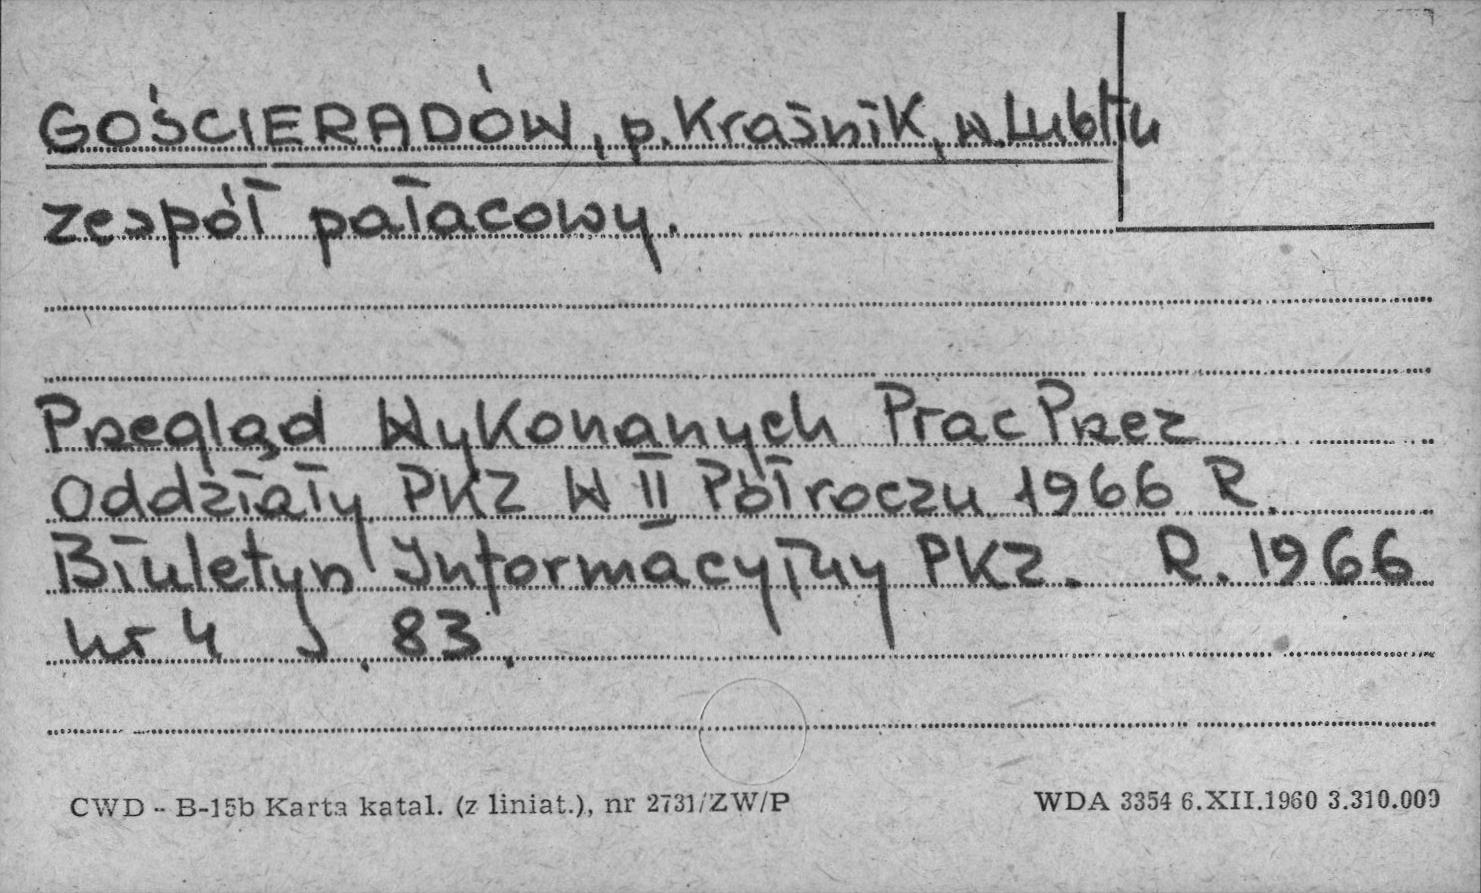 GOŚCIERADÓW, p. Kraśnik, w. Lublin
zespół pałacowy.
Przegląd Wykonanych Prac Przez
Oddziały PKZ W II Półroczu 1966 R.
Biuletyn Informacyjny PKZ. R. 1966
nr 4 s. 83.
CWD - B-15b Karta katal. (z liniat.), nr 2731/ZW/P
WDA 3354 6.XII.1960 3.310.000